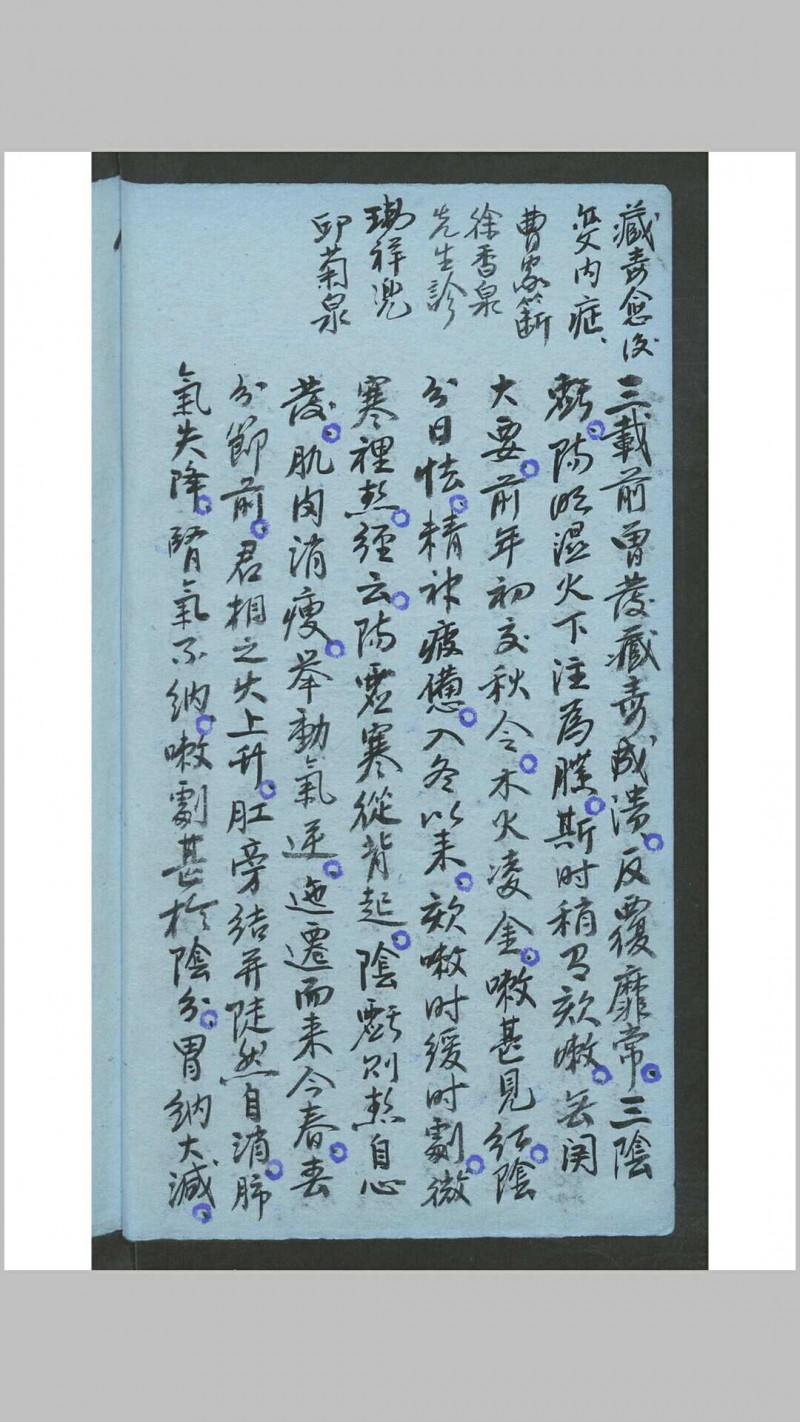 藏毒愈後
変内症、
曹家簖
徐香泉
先生診
瑞祥兜
邱菊泉
三載前曾發藏毒成潰。反覆靡常。三陰
虧。陽明濕火下注為臁。斯时稍有欬嗽。無関
大要。前年初交秋令。木火凌金。嗽甚見紅。陰
分日怯。精神疲憊。入冬以来。欬嗽时緩时劇。微
寒裡熱。經云。陽虛寒從背起。陰虧則熱自心
發。肌肉消瘦。举動氣逆。迤遷而来今春。春
分節前。君相之火上升。肛旁结并陡然自消。肺
氣失降。腎氣不纳。嗽劇甚於陰分。胃纳大減。